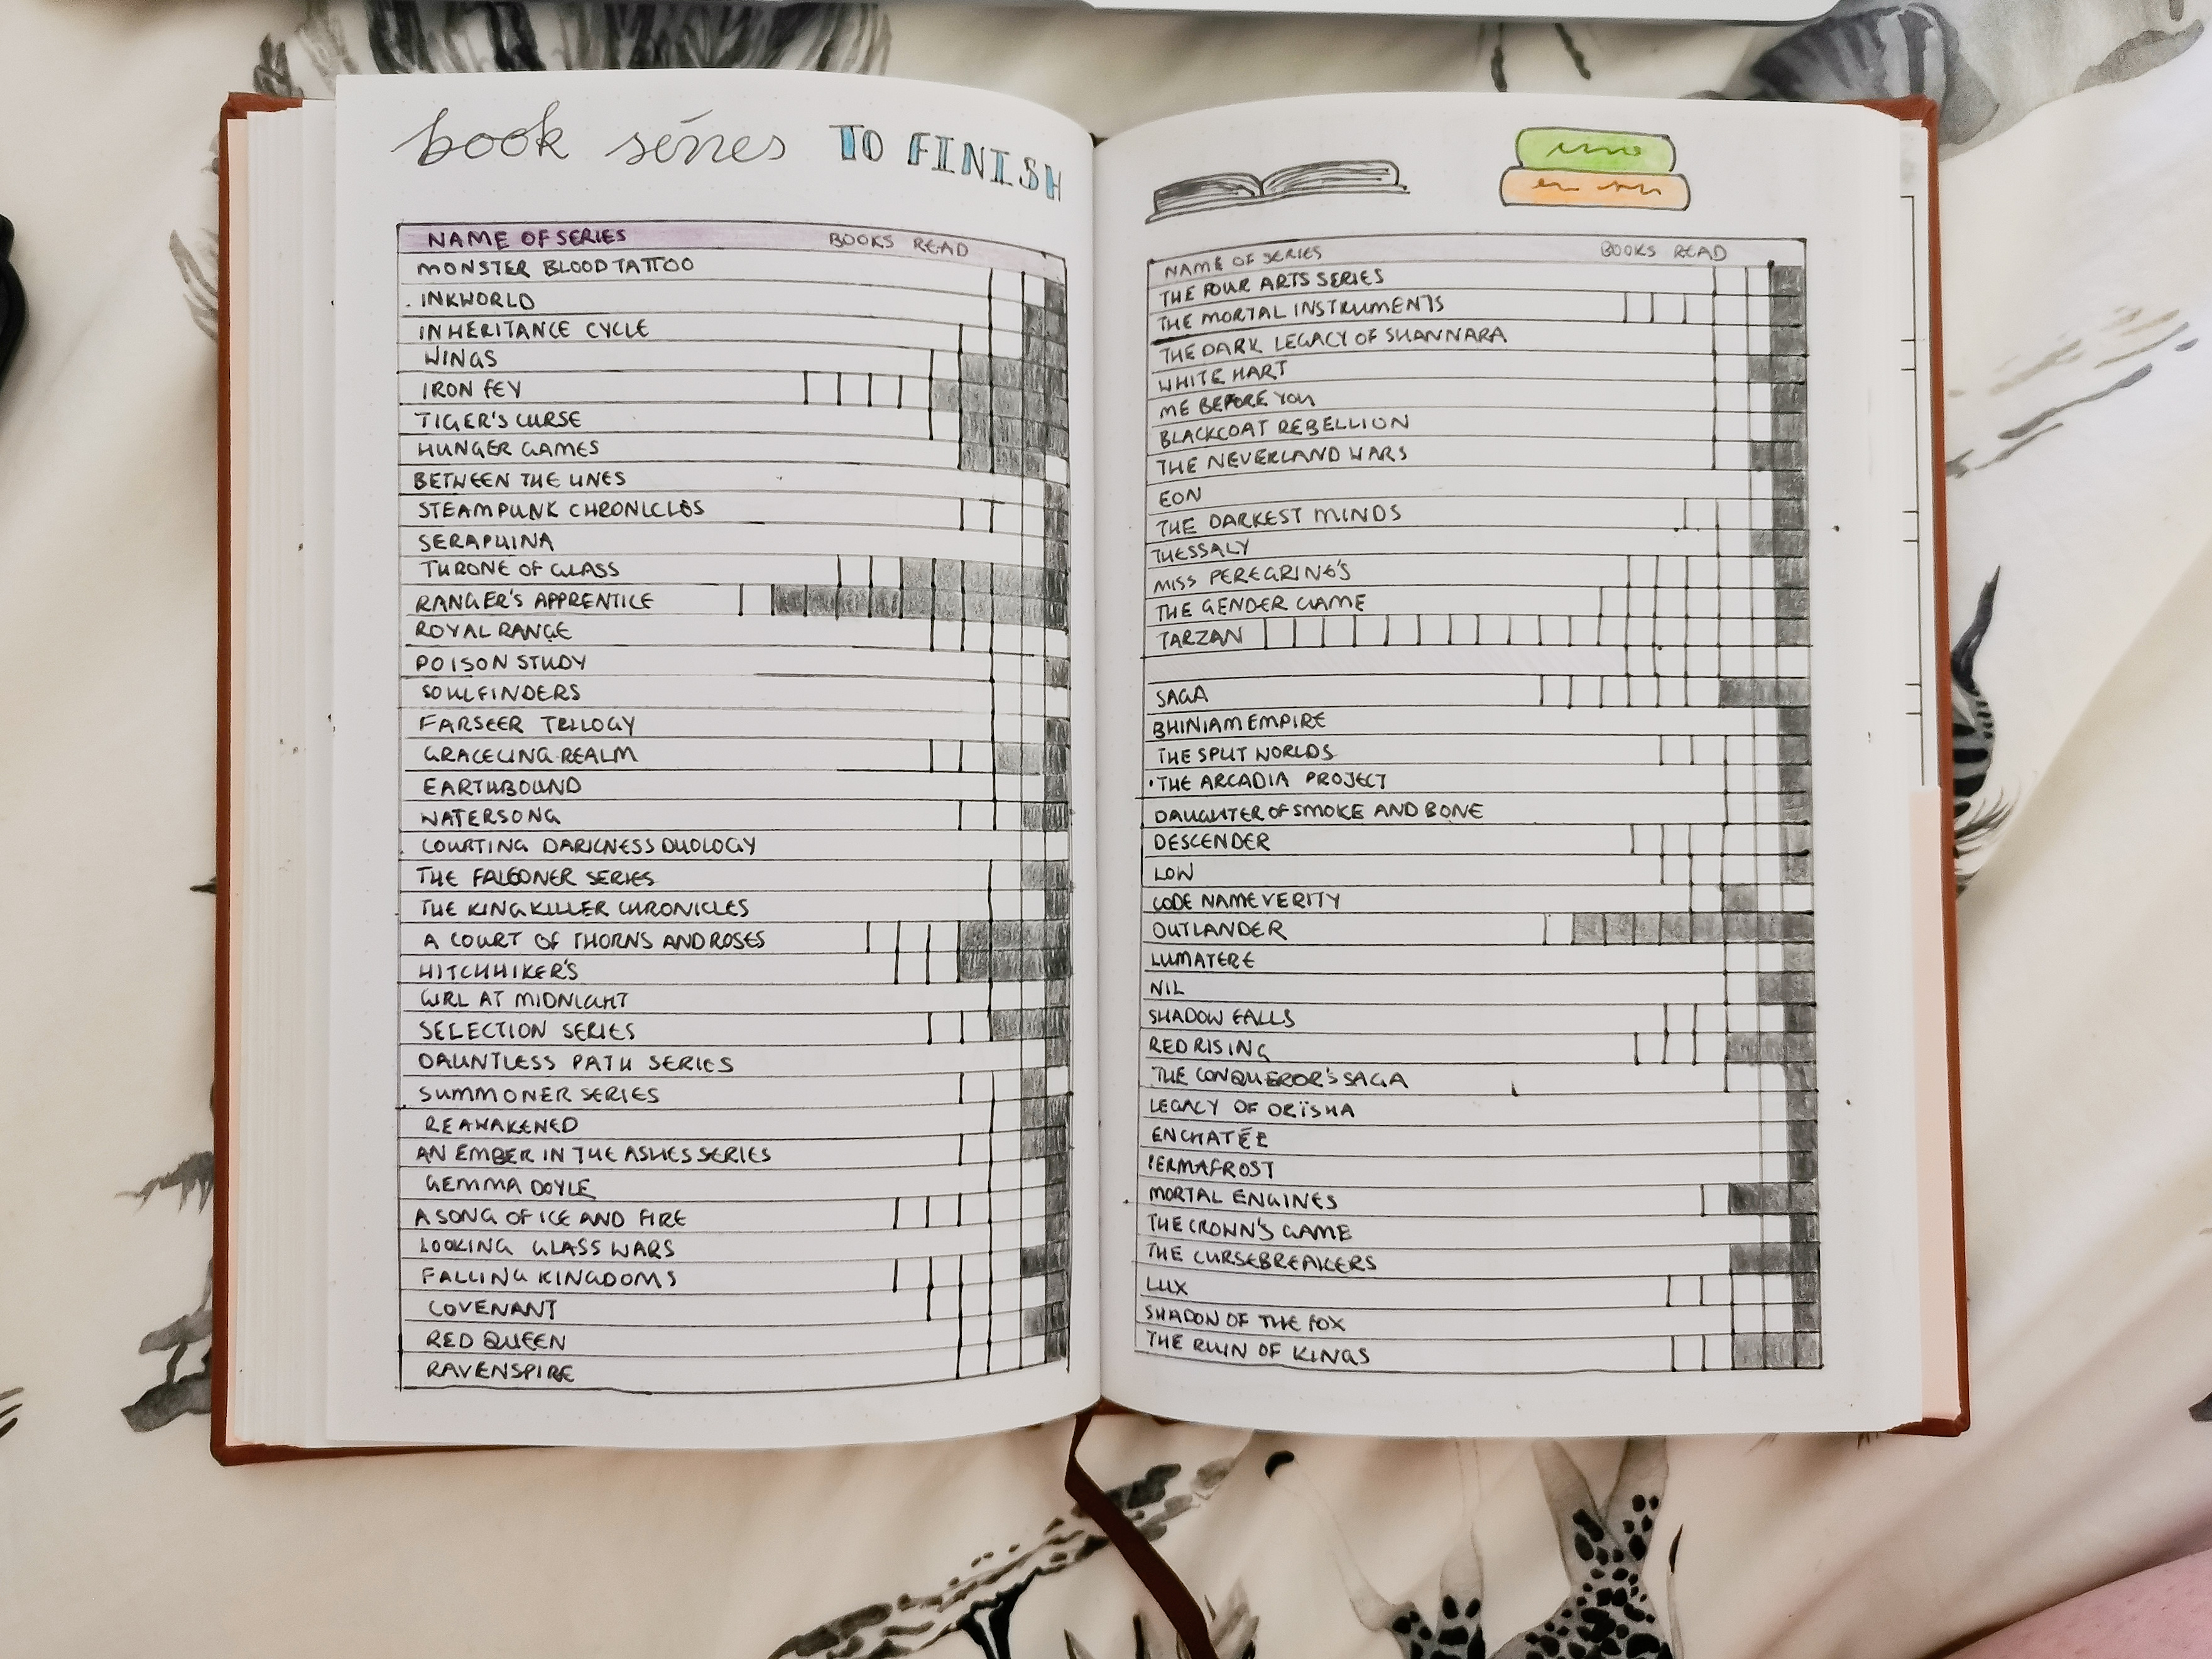 book séries TO FINISH
NAME OF SERIES BOOKS READ
MONSTER BLOOD TATTOO
INKWORLD
INHERITANCE CYCLE
WINGS
IRON FEY
TIGER'S CURSE
HUNGER GAMES
BETWEEN THE LINES
STEAMPUNK CHRONICLES
SERAPHINA
THRONE OF GLASS
RANGER'S APPRENTICE
ROYAL RANGE
POISON STUDY
SOULFINDERS
FARSEER TRILOGY
GRACELING REALM
EARTHBOUND
WATERSONG
COURTING DARKNESS DUOLOGY
THE FALCONER SERIES
THE KINGKILLER CHRONICLES
A COURT OF THORNS AND ROSES
HITCHHIKER'S
GIRL AT MIDNIGHT
SELECTION SERIES
DAUNTLESS PATH SERIES
SUMMONER SERIES
REAWAKENED
AN EMBER IN THE ASHES SERIES
GEMMA DOYLE
A SONG OF ICE AND FIRE
LOOKING GLASS WARS
FALLING KINGDOMS
COVENANT
RED QUEEN
RAVENSPIRE
NAME OF SERIES BOOKS READ
THE FOUR ARTS SERIES
THE MORTAL INSTRUMENTS
THE DARK LEGACY OF SHANNARA
WHITE HART
ME BEFORE YOU
BLACKCOAT REBELLION
THE NEVERLAND WARS
EON
THE DARKEST MINDS
THESSALY
MISS PEREGRINE'S
THE GENDER GAME
TARZAN
SAGA
BHINIAM EMPIRE
THE SPLIT WORLDS
THE ARCADIA PROJECT
DAUGHTER OF SMOKE AND BONE
DESCENDER
LOW
CODE NAME VERITY
OUTLANDER
LUMATERE
NIL
SHADOW FALLS
RED RISING
THE CONQUEROR'S SAGA
LEGACY OF ORÏSHA
ENCHATÉE
PERMAFROST
MORTAL ENGINES
THE CROWN'S GAME
THE CURSEBREAKERS
LUX
SHADOW OF THE FOX
THE RUIN OF KINGS